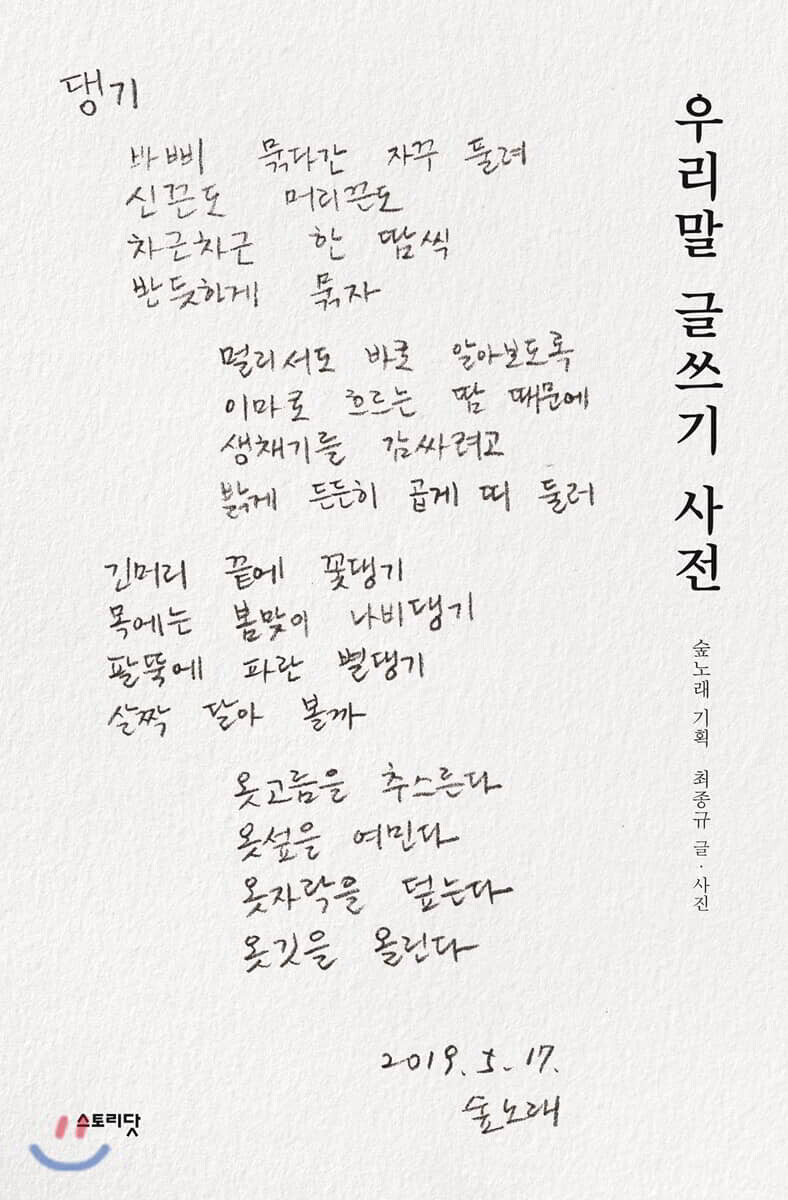 댕기
바삐 묶다간 자꾸 풀려
신끈도 머리끈도
차근차근 한 땀씩
반듯하게 묶자
멀리서도 바로 알아보도록
이마로 흐르는 땀 때문에
생채기를 감싸려고
밝게 든든히 곱게 띠 둘러
긴머리 끝에 꽃댕기
목에는 봄맞이 나비댕기
팔뚝에 파란 별댕기
살짝 달아 볼까
옷고름을 추스른다
옷섶을 여민다
옷자락을 덮는다
옷깃을 올린다
2019. 5. 17.
숲노래
우리말 글쓰기 사전
숲노래 기획 최종규 글·사진
스토리닷